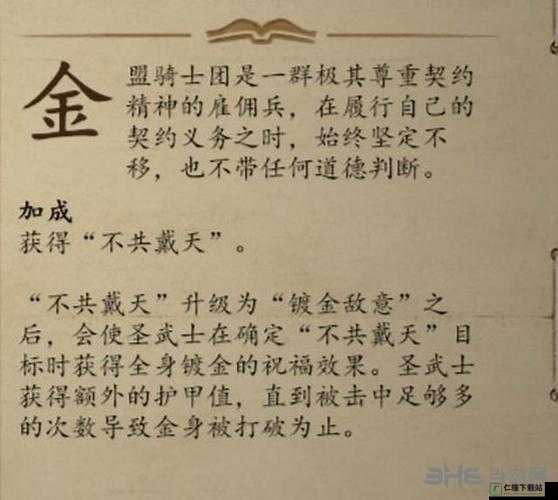 金
盟骑士团是一群极其尊重契约
精神的雇佣兵，在履行自己的
契约义务之时，始终坚定不
移，也不带任何道德判断。
加成
获得“不共戴天”。
“不共戴天”升级为“镀金敌意”之
后，会使圣武士在确定“不共戴天”目
标时获得全身镀金的祝福效果。圣武士
获得额外的护甲值，直到被击中足够多
的次数导致金身被打破为止。
仁瑾下载站